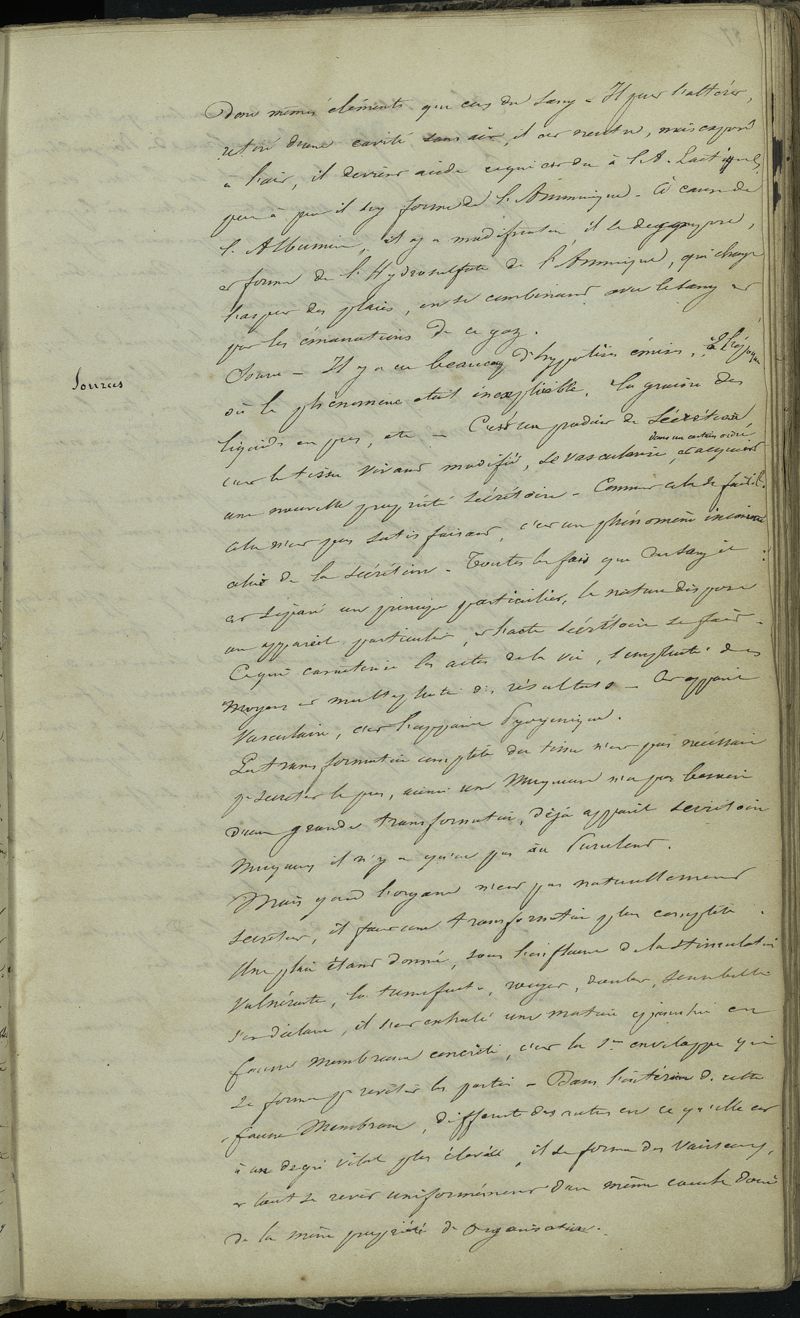 87
Donc mêmes éléments que ceux du sang - Il peut s'altérer,
retiré d'une cavité sans air, il est neutre, mais exposé
à l'air, il devient acide ce qui est dû à l'A. Lactique
peu à peu il s'y forme de l'Ammoniaque - à cause de
l'Albumine, il y a modification il se décompose,
et forme de l'Hydrosulfate de l'Ammoniaque, qui change
l'aspect des plaies, en se combinant avec le sang et
par les émanations de ce gaz.
Sources
Source - Il y a eu beaucoup d'hypothèses émises, à l'époque
où le phénomène était inexplicable, la graisse des
liquides en pus, etc - C'est un produit de Sécrétion
dans un certain ordre
car le tissu vivant modifié, se vascularise, et acquiert
une nouvelle propriété sécrétoire - Comment cela se fait-il
cela n'est pas satisfaisant, c'est un phénomène
de la sécrétion - Toutes les fois que du sang il
est séparé un principe particulier, la nature dispose
un appareil particulier, et l'acte sécrétoire se fait -
Ce qui caractérise les actes de la vie, simplicité des
moyens et multiplicité des résultats - Cet appareil
Vasculaire, c'est l'appareil Pyogénique.
La transformation complète du tissu n'est pas nécessaire
pr sécréter le pus, ainsi une Muqueuse n'a pas besoin
d'une grande transformation, déjà appareil sécrétoire
Muqueux il n'y a qu'un pas au Purulent.
Mais quand l'organe n'est pas naturellement
sécréteur, il faut une transformation plus complète.
Une plaie étant donnée, sous l'influence de la stimulation
Vulnérante, la tuméfaction, rougeur, douleur, sensibilité
s'en déclare, il s'est exhalé une matière épanchée en
fausse Membrane concrète, c'est la 1re enveloppe qui
se forme pr revêtir les parties - Dans l'intérieur de cette
fausse Membrane, différent des autres en ce qu'elle est
à un degré vital plus élevée, il se forme des Vaisseaux,
et tout se revêt uniformément d'une même couche douée
de la même propriété de organisation.